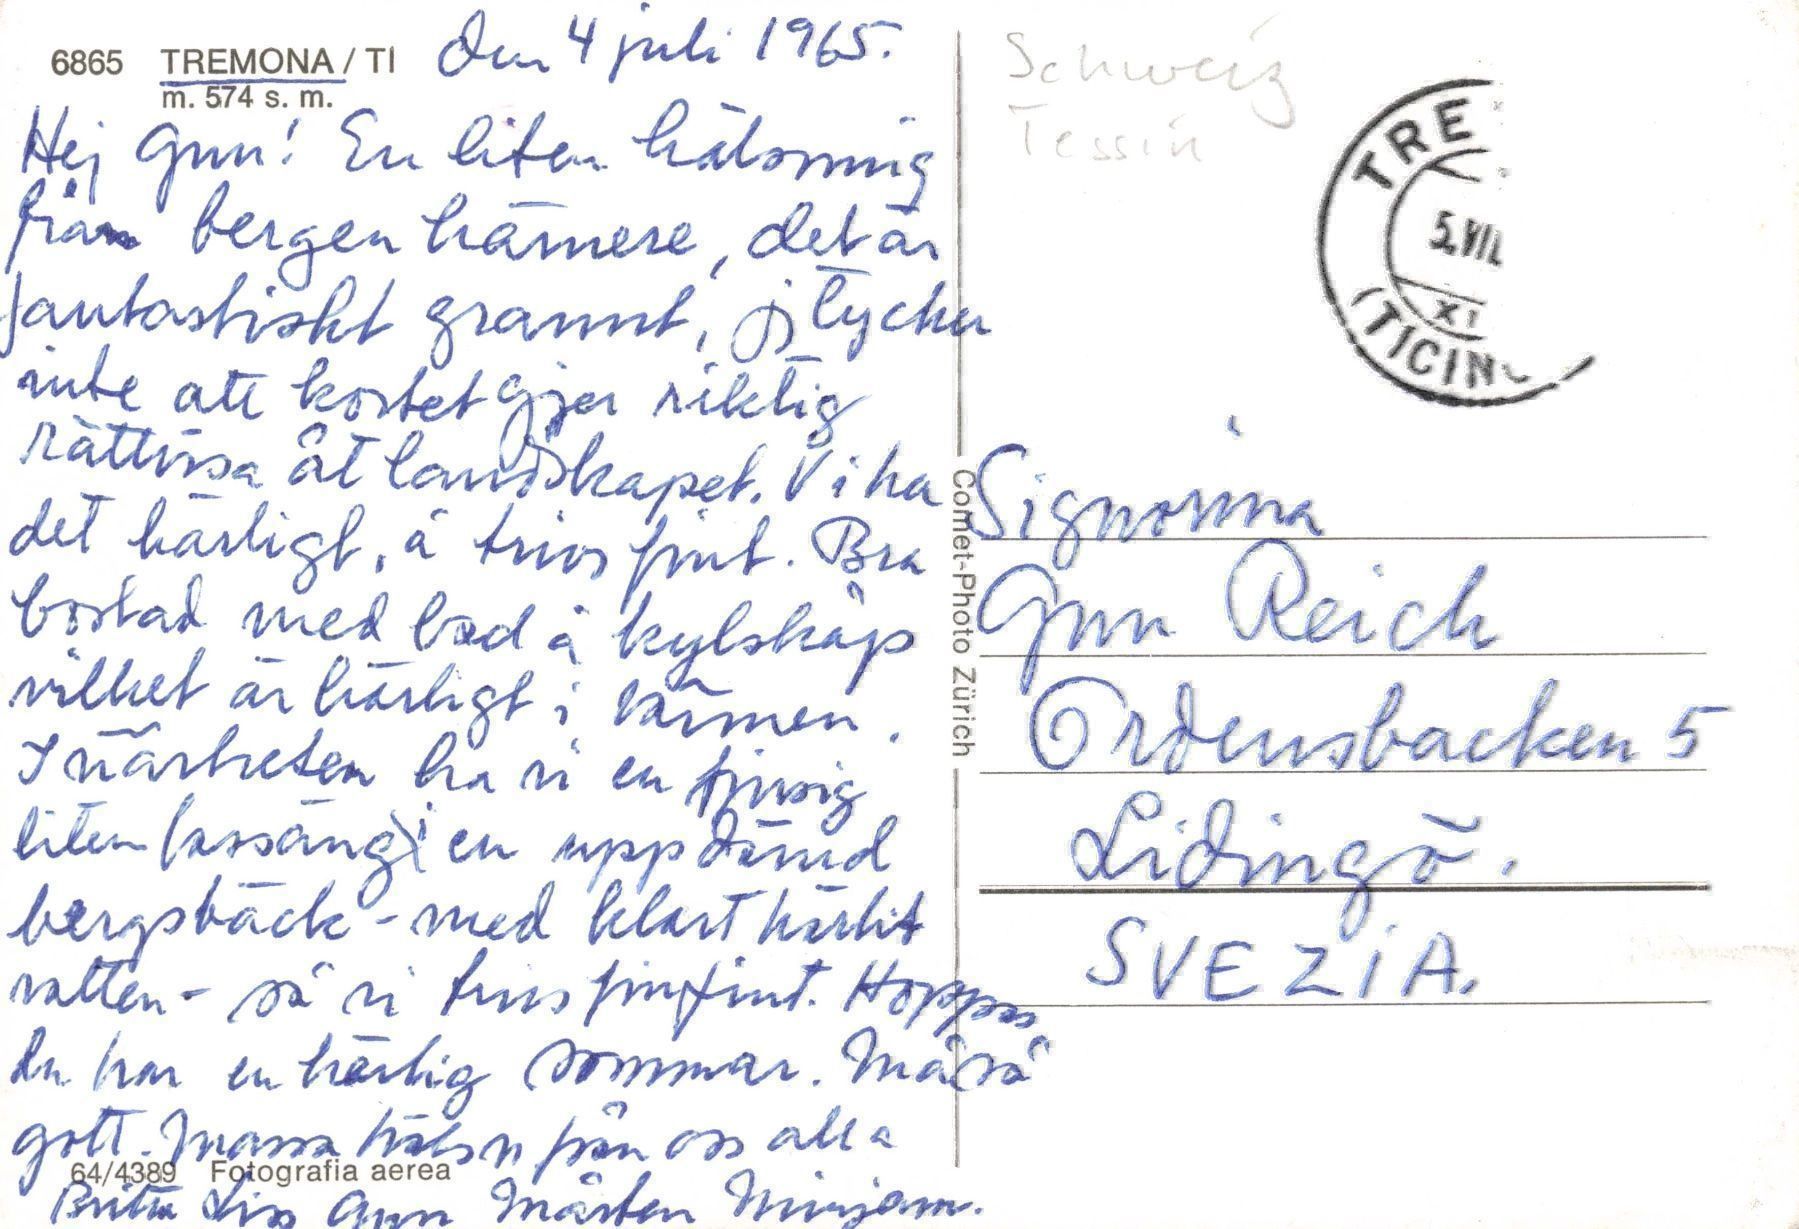 6865 TREMONA / TI den 4 juli 1965.
m. 574 s. m.
Hej Gun! En liten hälsning
från bergen härnere, det är
fantastiskt grannt, jg tycker
inte att kortet gjer riktig
rättvisa åt landskapet. Vi ha
det härligt, å trivs fint. Bra
bostad med bad å kylskåp
vilket är härligt i värmen.
I närheten ha vi en tjusig
liten bassäng i en uppdämd
bergsbäck - med klart härlit
vatten - så vi trivs finfint. Hoppas
du har en härlig sommar. Må så
gott. Massa hälsn från oss alla
64/4389 Fotografia aerea
Britta Lisa Gun Mårten Mirjam.
Comet-Photo Zürich
Schweiz
Tessin
TRE
5.VII
XI
(TICIN
Signorina
Gun Reich
Ordensbacken 5
Lidingö.
SVEZIA.